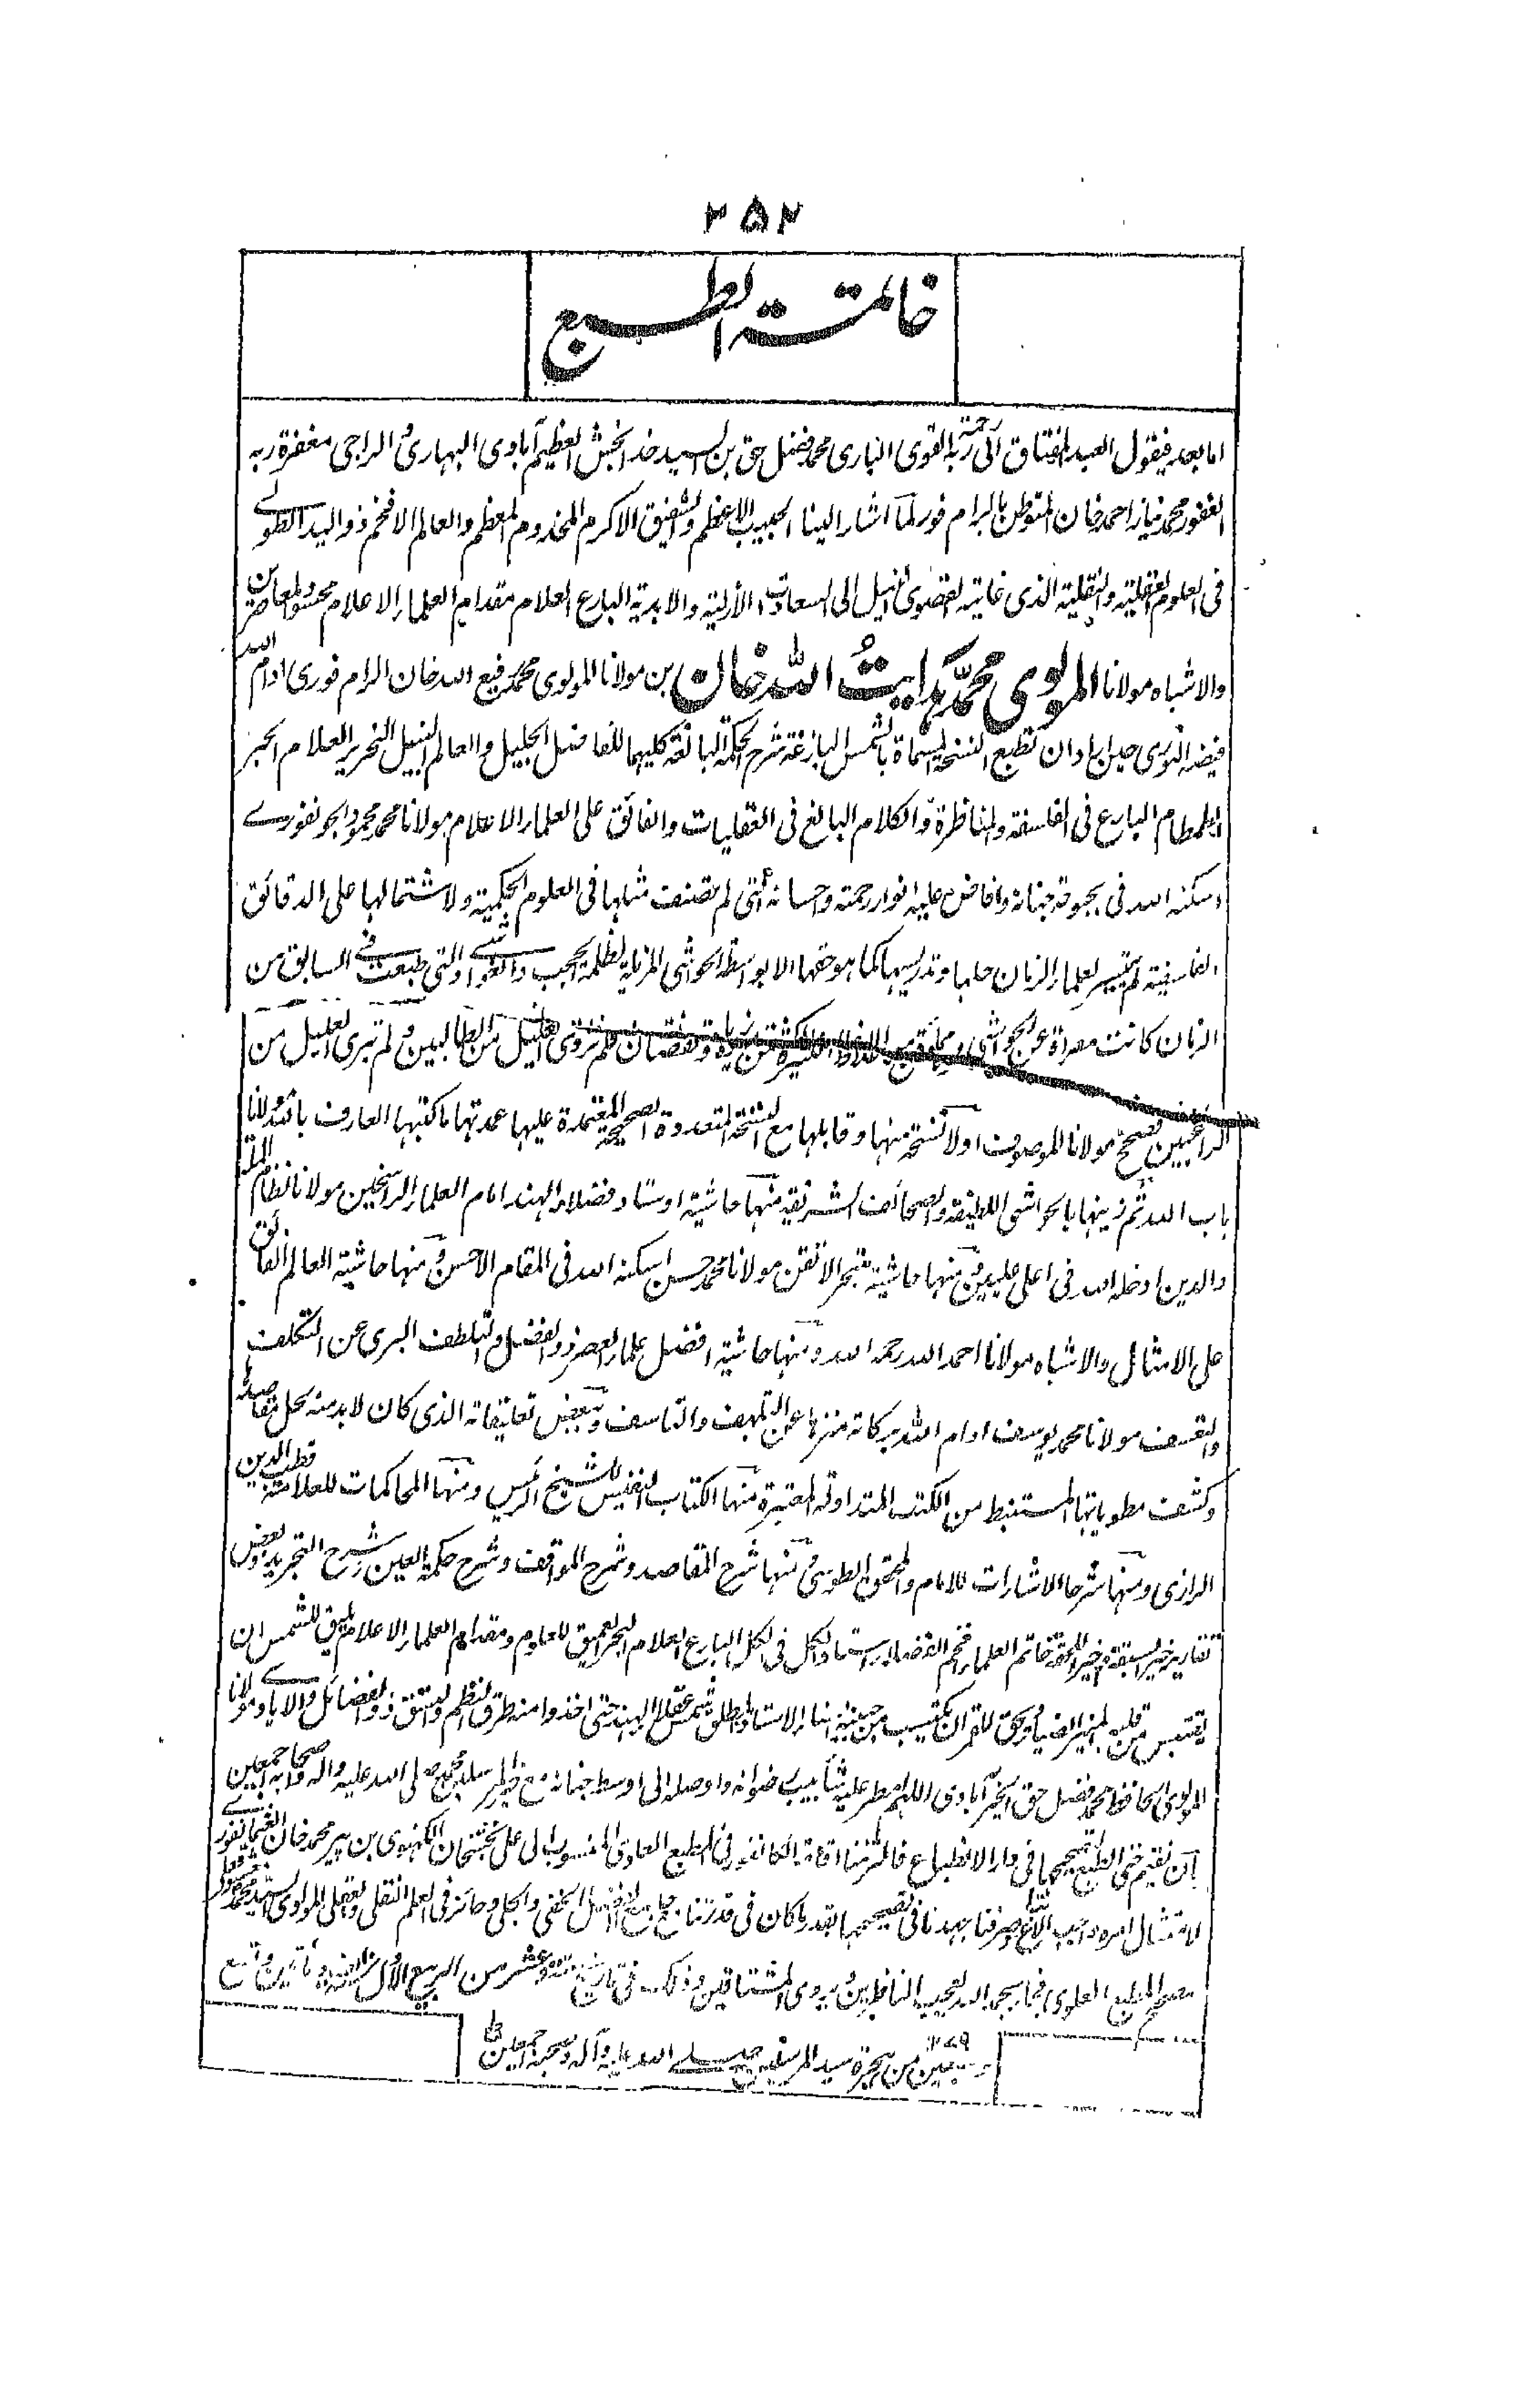 ۲۵۲
خاتمة الطبع
اما بعد فيقول العبد المفتاق الى رحمة ربه القوى البارى محمد فضل حق بن السيد خدا بخش العظيم آبادى البهارى و الراجى مغفرة ربه
الغفور محمد نياز احمد خان المتوطن بالرام فور لما اشار الينا الحبيب الاعظم والشفيق الاكرم المخدوم المعظم والعالم الافخم ذو اليد الطولے
فى العلوم العقلية والنقلية الذى غايته القصوى النيل الى السعادات الأزلية والابدية البارع العلام مقدام العلماء الاعلام محسود المعاصرين
والاشباه مولانا المولوى محمد هدايت الله خان بن مولانا المولوى محمد رفيع الله خان الرام فورى ادام الله
فيضه القوى حين اراد ان تطبع النسخة المسماة بالشمس البازغة شرح الحكمة البالغة كليهما للفاضل الجليل والعالم النبيل النحرير العلام الحبر
الطمطام البارع فى الفلسفة والمناظرة والكلام البالغ فى العقليات والفائق على العلماء الاعلام مولانا محمد محمود الجونفورے
اسكنه الله فى بحبوحة جنانه وافاض عليه انوار رحمته واحسانه التى لم يصنف مثلها فى العلوم الحكمية ولاشتمالها على الدقائق
الفلسفية لم يتيسر لعلماء الزمان حلها وتدريسها كما هو حقها الا بواسطة الحواشى المزيلة لظلمة الحجب والغواشى والتى طبعت فى السابق من
الزمان كانت معراة عن الحواشى ومملوة من الاغلاط الكثيرة من زيادة ونقصان فلم تروى الغليل من الطالبين ولم تبرى العليل من
الراغبين فصحح مولانا الموصوف اولا نسخة منها وقابلها مع النسخة المتعددة الصحيحة المعتمدة عليها عمدتها ما كتبها العارف بالله مولانا
باب الله ثم زينها بالحواشى اللطيفة والصحائف الشريفة منها حاشية اوستاد فضلاء الهند امام العلماء الراسخين مولانا نظام الملة
والدين ادخله الله فى اعلى عليين ومنها حاشية المتبحر الاتقن مولانا محمد حسن اسكنه الله فى المقام الاحسن ومنها حاشية العالم الفائق
على الامثال والاشباه مولانا احمد الله رحمه الله ومنها حاشية افضل علماء العصر ذو الفضل والتلطف البرى عن التكلف
والتعسف مولانا محمد يوسف ادام الله بركاته منزها عن التلهف والتاسف وبعض تعليقاته الذى كان لابد منه لحل مقاصدها
وكشف مطوياتها المستنبط من الكتب المتداولة المعتبرة منها الكتاب النفيس للشيخ الرئيس ومنها المحاكمات للعلامة قطب الدين
الرازى ومنها شرحا الاشارات للامام والمحقق الطوسى ومنها شرح المقاصد وشرح المواقف وشرح حكمة العين وشرح التجريد وبعض
تقارير خير السبقة وخير اللحقة خاتم العلماء فخم الفضلاء استاد الكل فى الكل البارع العلام البحر العميق للعلوم ومقدام العلماء الاعلام يليق للشمس ان
تقتبس من قلبه المنير الضياء ويحق للقمر ان يكتسب من جبينه السناء الاستاذ المطلق شمس عقلاء الهند حتى اخذوا منه طرق النظم والنسق ذو الفضائل والايادے مولانا
المولوى الحافظ محمد فضل حق الخيرآبادى اللهم امطر عليه شآبيب رضوانه واوصله الى اوسط جنانه مع خير رسله محمد صلى الله عليه واله وصحابه اجمعين
ان نقيم فى الطبع لتصحيحها فى دار الانطباع فالتزمنا اقامة الكانفور فى المطبع العلوى المنسوب الى على بخش خان اللكهنوى بن پير محمد خان
لامتثال امره واجب الاتباع وصرفنا جهدنا فى تصحيحها بقدر ما كان فى قدرتنا مع جامع الفضل الخفى والجلى وحائز فى العلم النقلى والعقلى المولوى السيد محمد معشوق على
مصحح المطبع العلوى فجاء بحمد الله يعجب الناظرين ويروى المشتاقين وذلك فى تاريخ عشر من الربيع الاول مائتين وتسع
وسبعين من هجرة سيد المرسلين صلے الله عليه وآله وصحبه اجمعين
۱۲۷۹